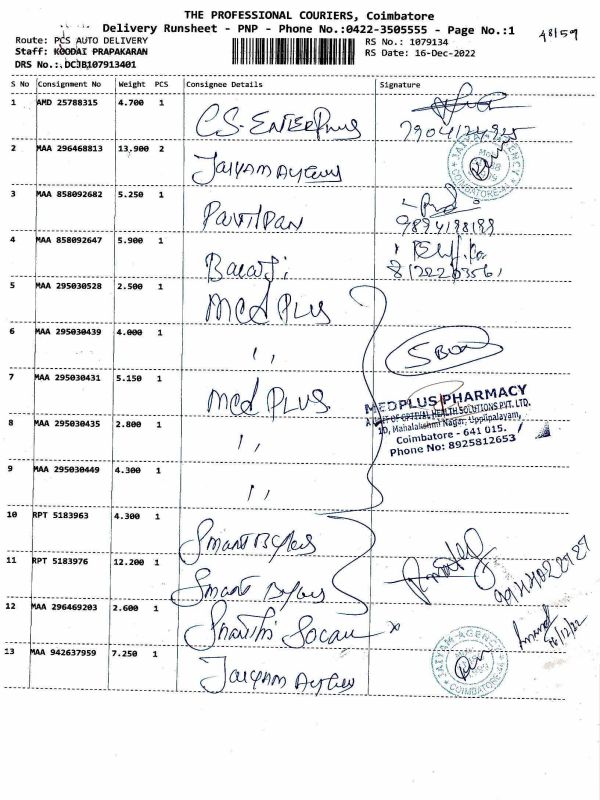 THE PROFESSIONAL COURIERS, Coimbatore
Delivery Runsheet - PNP - Phone No.:0422-3505555 - Page No.:1
48/59
Route: PCS AUTO DELIVERY
RS No.: 1079134
Staff: KOODAI PRAPAKARAN
RS Date: 16-Dec-2022
DRS No.:.DCJB107913401
S No Consignment No Weight PCS Consignee Details Signature
1 AMD 25788315 4.700 1 CS-ENTERPRISES
2 MAA 296468813 13.900 2 JAIYAM AGENCY
JAIYAM AGENCY
COIMBATORE
3 MAA 858092682 5.250 1
9894198199
4 MAA 858092647 5.900 1 Balaji
5 MAA 295030528 2.500 1 Med PLUS
6 MAA 295030439 4.000 1 ,,
7 MAA 295030431 5.150 1 Med PLUS
MEDPLUS PHARMACY
A UNIT OF OPTIVAL HEALTH SOLUTIONS PVT. LTD.
1D, Mahalakshmi Nagar, Uppilipalayam,
Coimbatore - 641 015.
Phone No: 8925812653
8 MAA 295030435 2.800 1 ,,
9 MAA 295030449 4.300 1 ,,
10 RPT 5183963 4.300 1 Smart Buyers
11 RPT 5183976 12.200 1 Smart Buyers
9944022727
12 MAA 296469203 2.600 1 Shanthi Socan
16/12/22
13 MAA 942637959 7.250 1 JAIYAM Agency
JAIYAM AGENCY
COIMBATORE